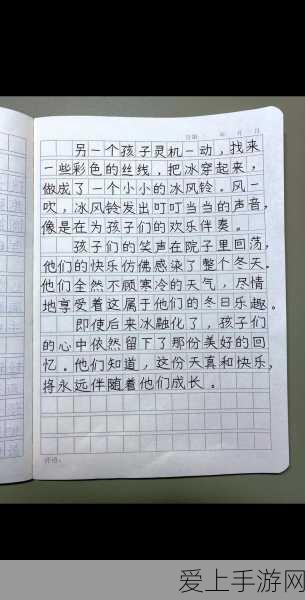 日期： 年 月 日
另一个孩子灵机一动，找来
一些彩色的丝线，把冰穿起来，
做成了一个小小的冰风铃。风一
吹，冰风铃发出叮叮当当的声音，
像是在为孩子们的欢乐伴奏。
孩子们的笑声在院子里回荡，
他们的快乐仿佛感染了整个冬天。
他们全然不顾寒冷的天气，尽情
地享受着这属于他们的冬日乐趣。
即使后来冰融化了，孩子们
的心中依然留下了那份美好的回
忆。他们知道，这份天真和快乐，
将永远伴随着他们成长。
评语：
爱上手游网